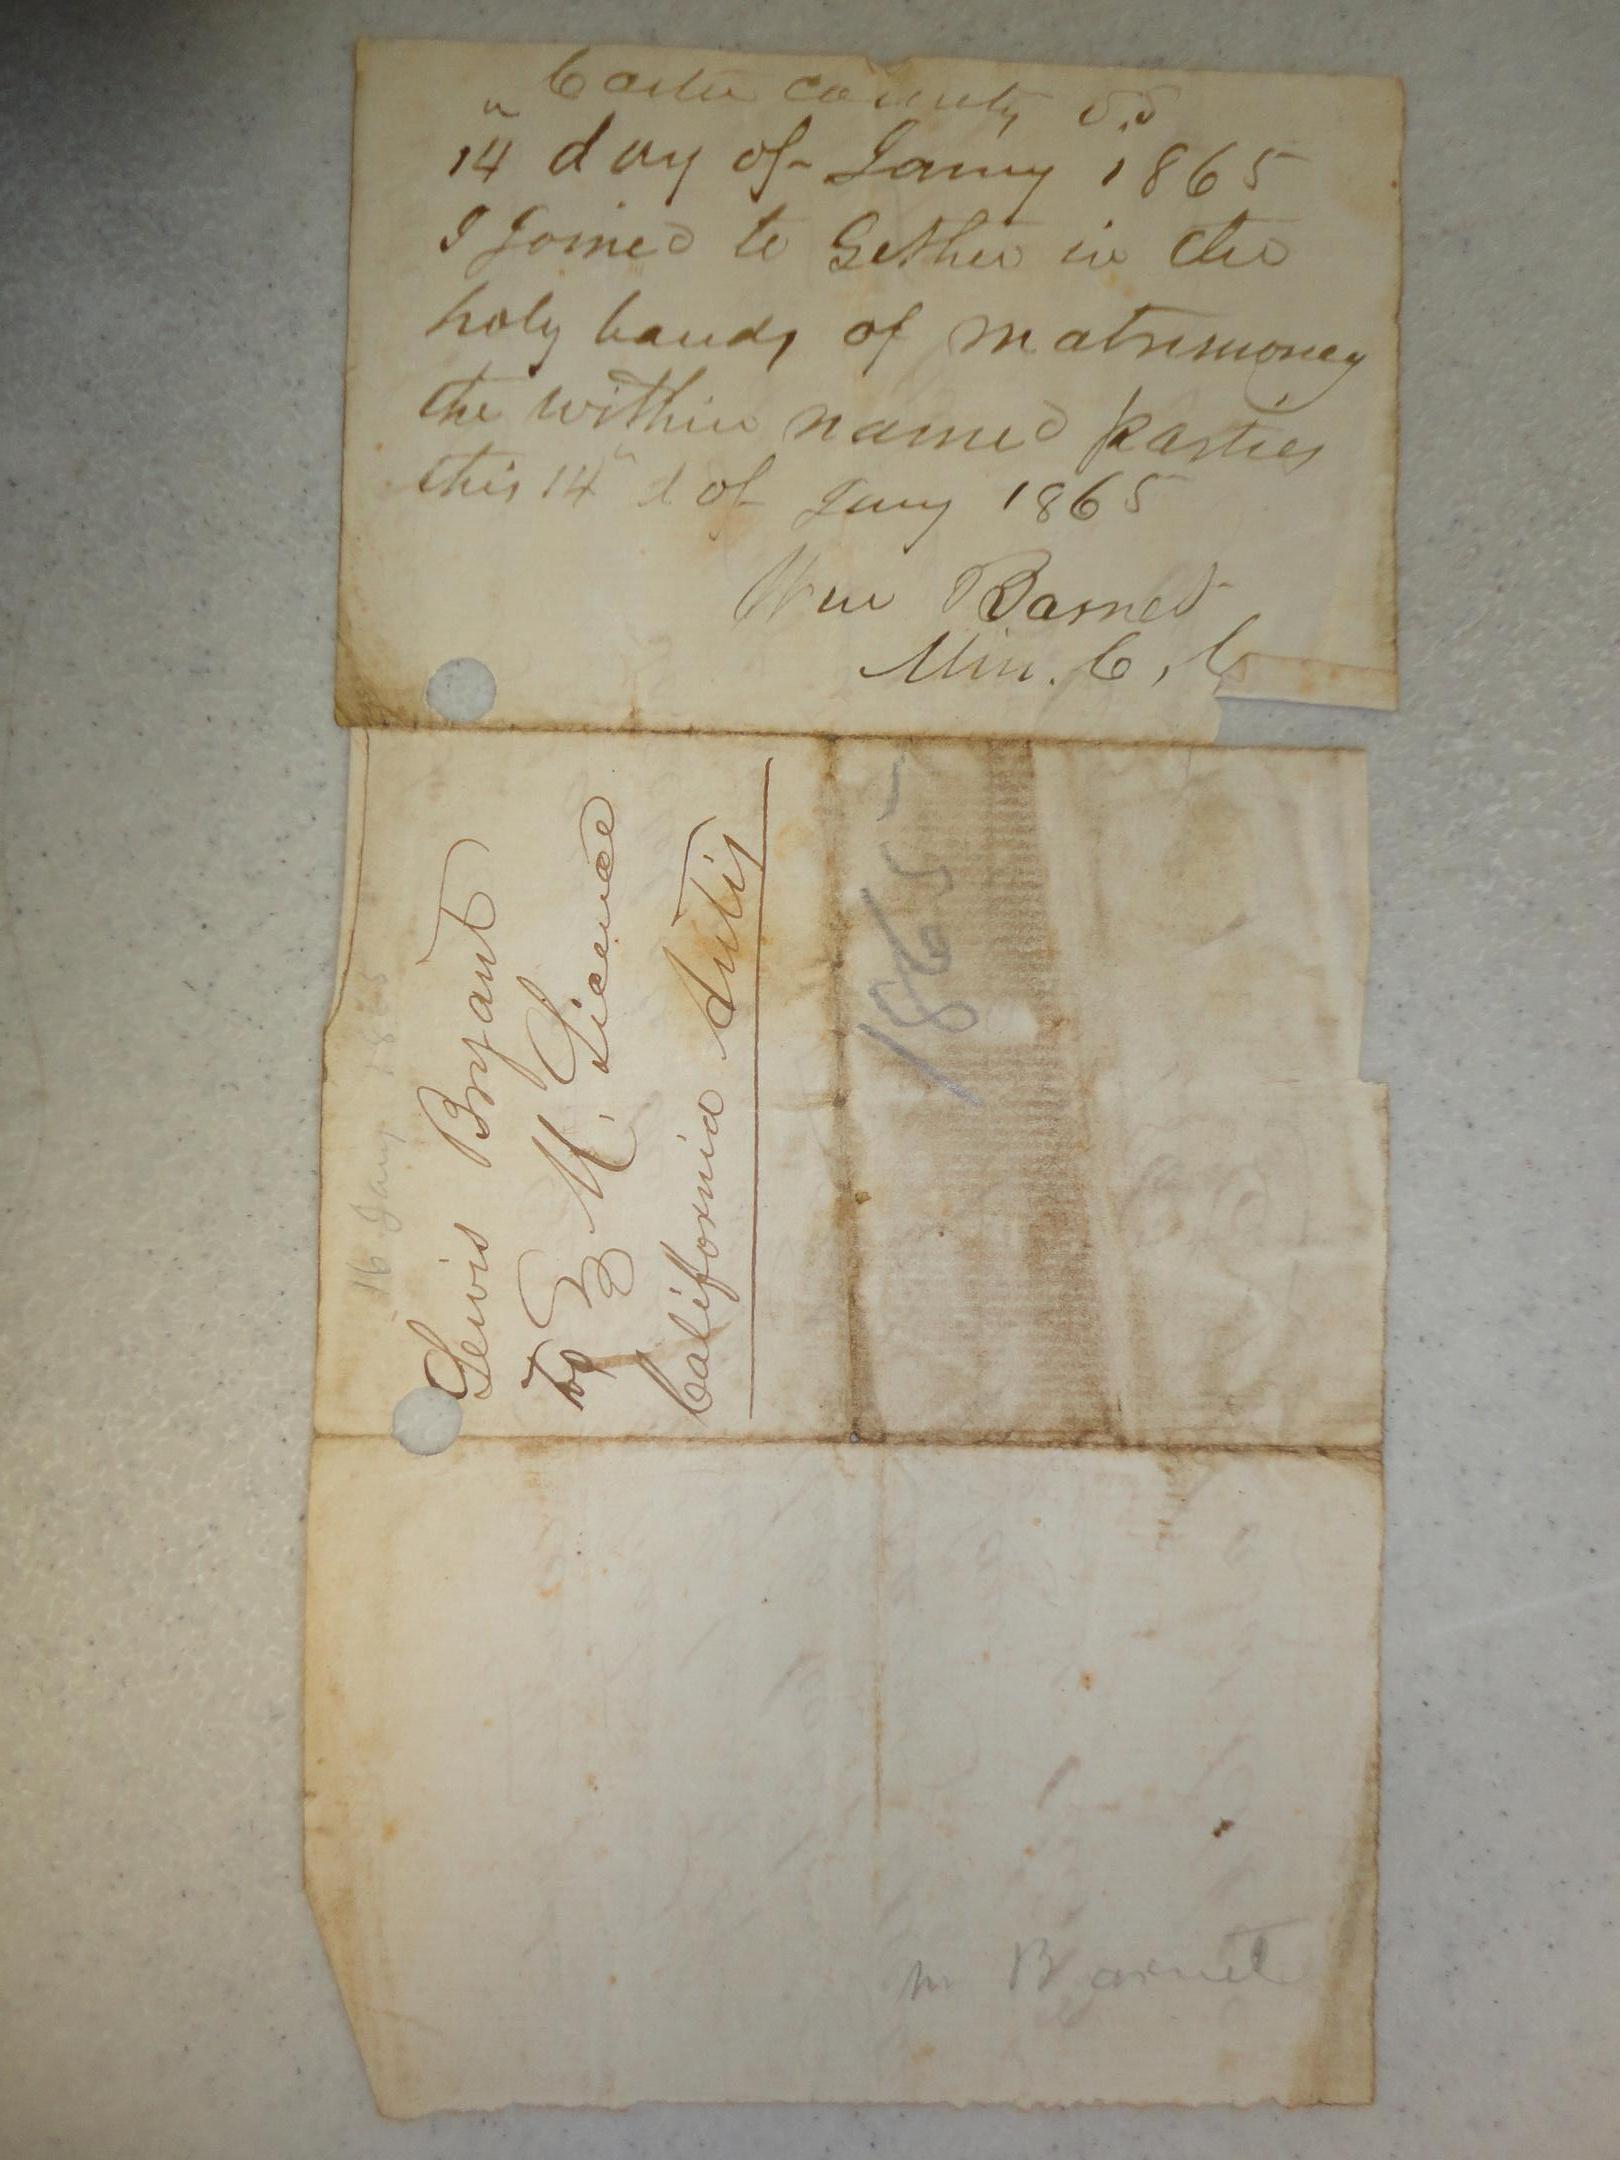 Carter County SS
14" day of Jany 1865
I Joined to Gether in the
holy bands of matrimoney
the within named parties
this 14" d of Jany 1865
Wm Barnet
Min. C, C
16 Jany 1865
Lewis Bryant
To } M. Licence
California Autis
1865
m Barnet